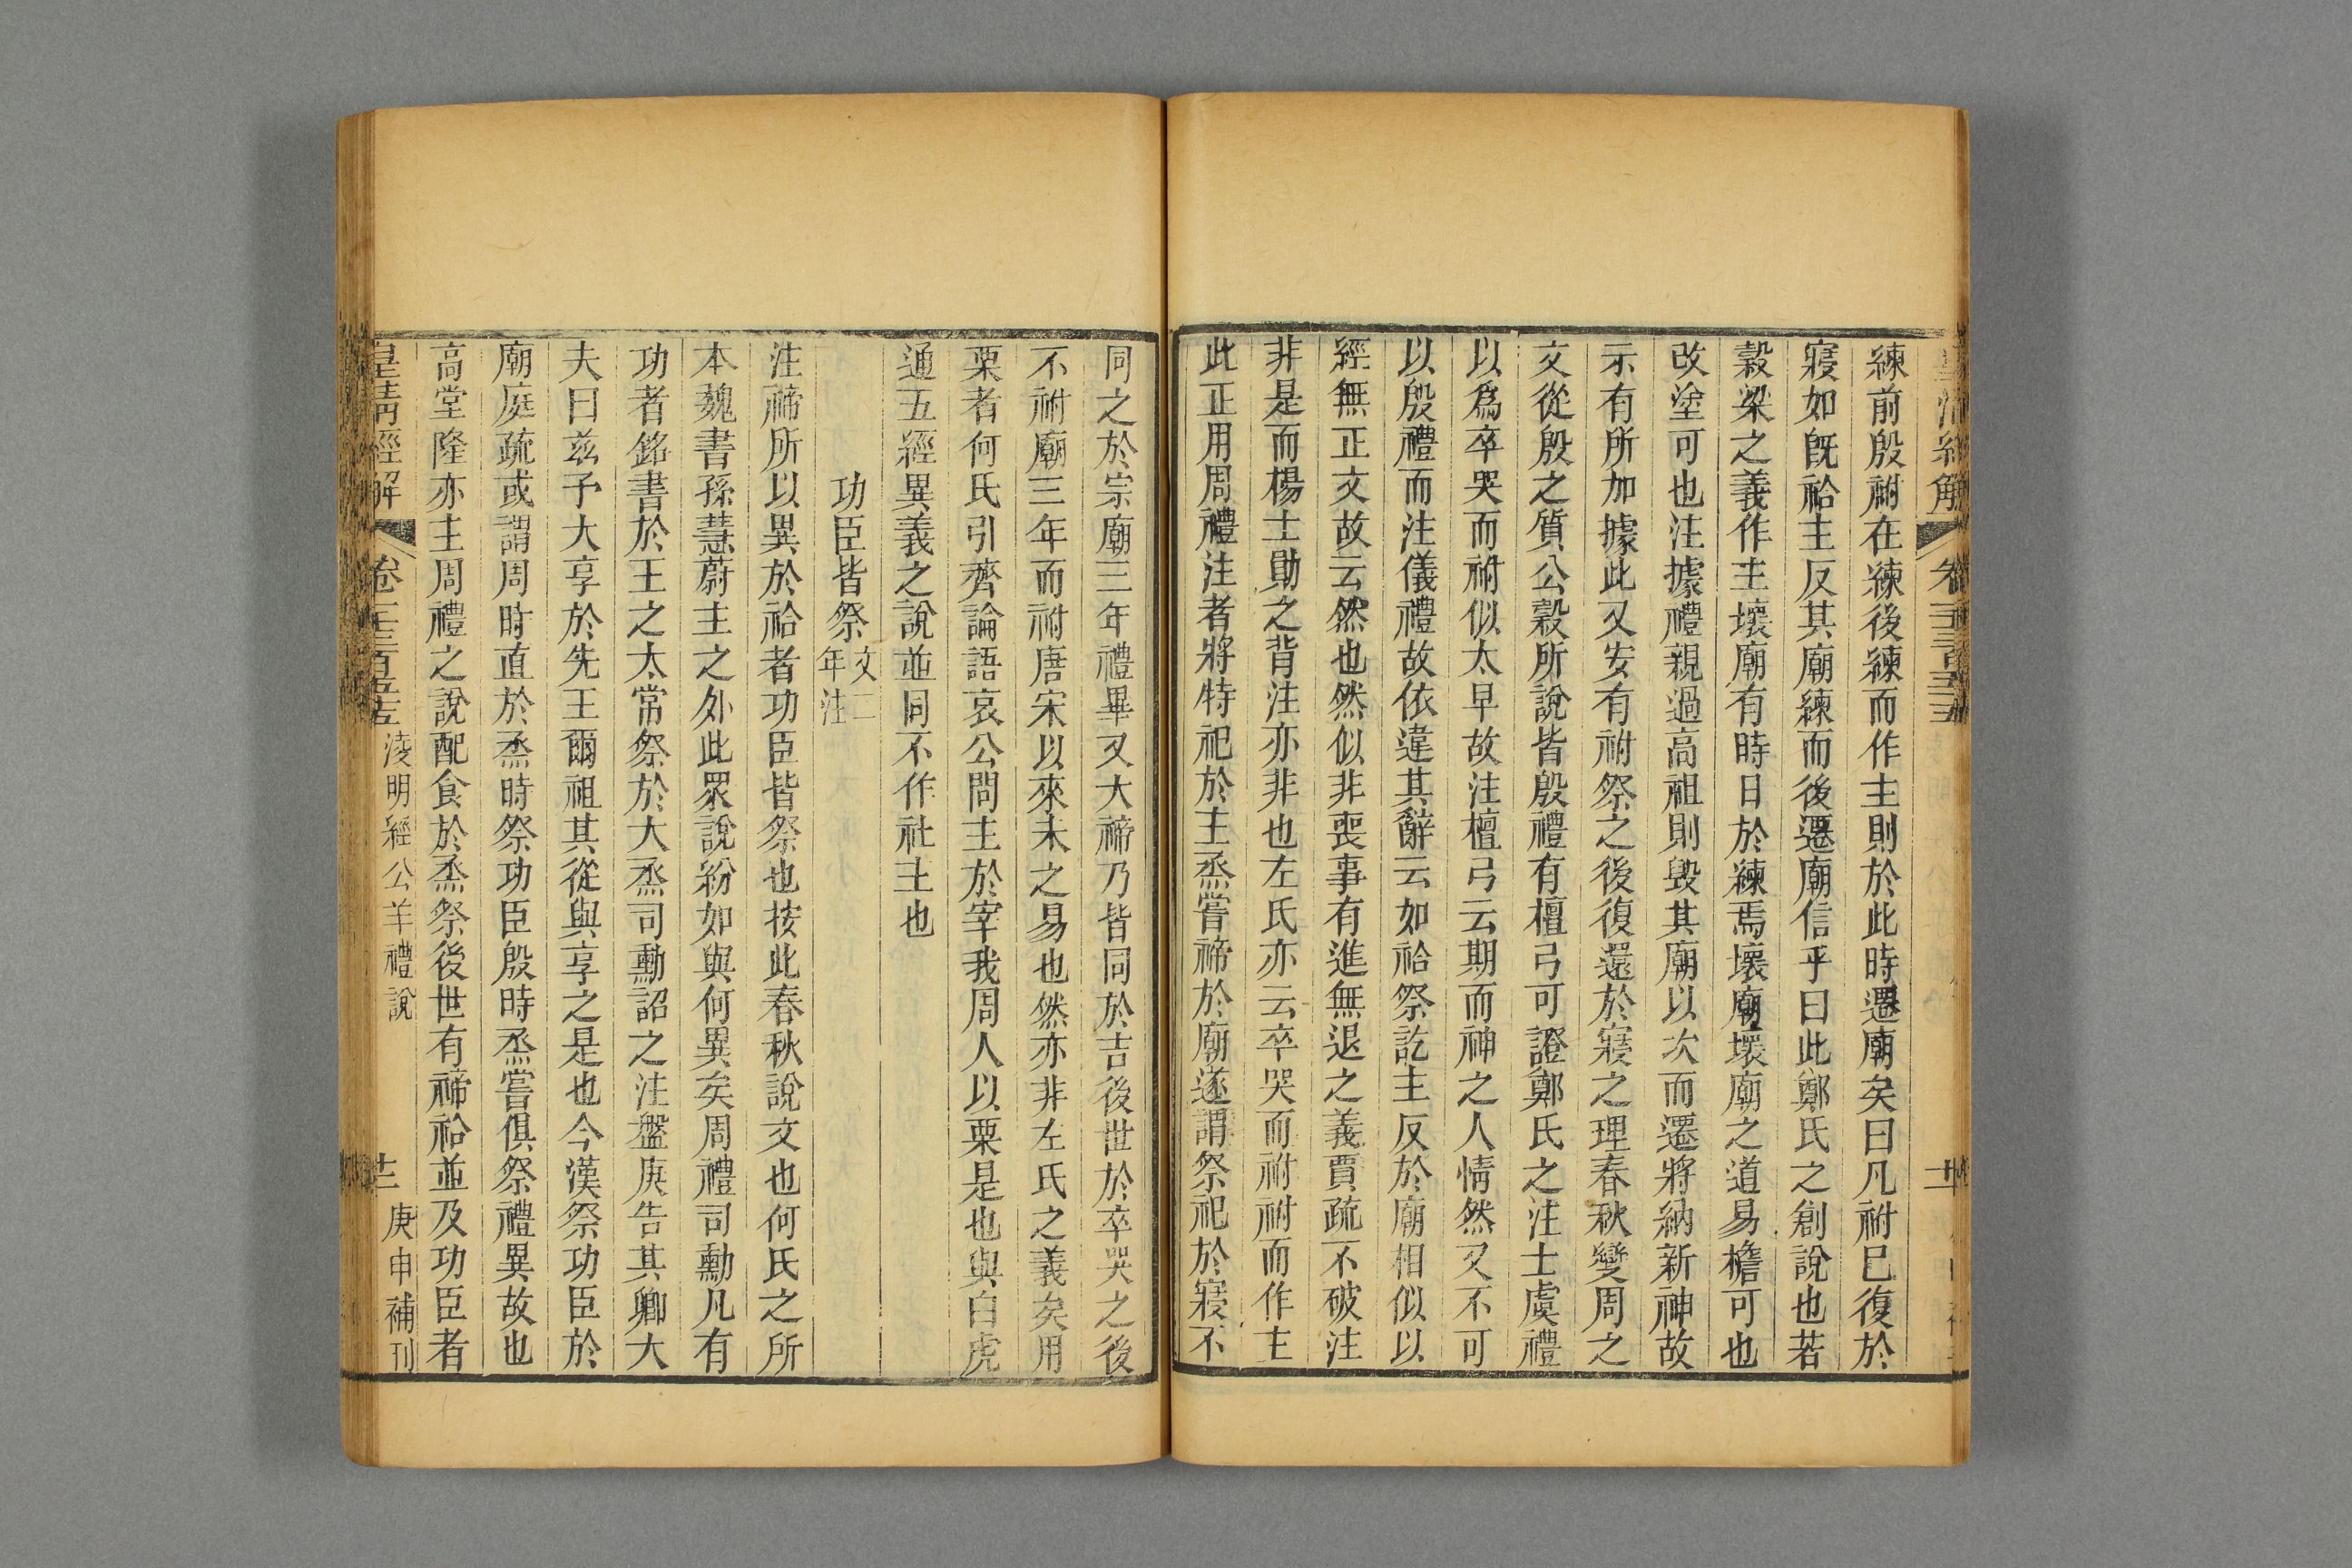 練前殷祔在練後練而作主則於此時遷廟矣曰凡祔巳復於
寢如旣祫主反其廟練而後遷廟信乎曰此鄭氏之創說也若
穀梁之義作主壞廟有時日於練焉壞廟壞廟之道易檐可也
改塗可也注據禮親過高祖則毀其廟以次而遷將納新神故
示有所加據此又安有祔祭之後復還於寢之理春秋變周之
文從殷之質公穀所說皆殷禮有檀弓可證鄭氏之注士虞禮
以爲卒哭而祔似太早故注檀弓云期而神之人情然又不可
以殷禮而注儀禮故依違其辭云如祫祭訖主反於廟相似以
經無正文故云然也然似非喪事有進無退之義賈疏不破注
非是而楊士勛之背注亦非也左氏亦云卒哭而祔祔而作主
此正用周禮注者將特祀於主烝嘗禘於廟遂謂祭祀於寢不
同之於宗廟三年禮畢又大禘乃皆同於吉後世於卒哭之後
不祔廟三年而祔唐宋以來未之易也然亦非左氏之義矣用
栗者何氏引齊論語哀公問主於宰我周人以栗是也與白虎
通五經異義之說並同不作社主也
功臣皆祭文二年注
注禘所以異於祫者功臣皆祭也按此春秋說文也何氏之所
本魏書孫慧蔚主之外此眾說紛如與何異矣周禮司勳凡有
功者銘書於王之太常祭於大烝司勳詔之注盤庚告其卿大
夫曰茲予大享於先王爾祖其從與享之是也今漢祭功臣於
廟庭疏或謂周時直於烝時祭功臣殷時烝嘗俱祭禮異故也
高堂隆亦主周禮之說配食於烝祭後世有禘祫並及功臣者
皇清經解 卷一千三百五十五 淩明經公羊禮說 十二 庚申補刊